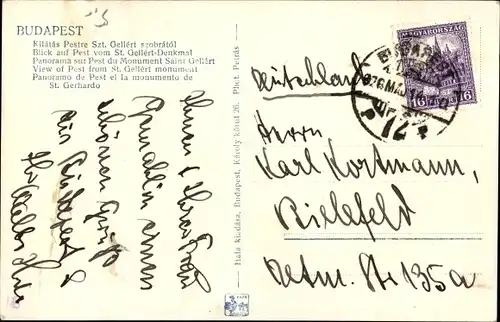 BUDAPEST
Kilátás Pestre Szt. Gellért szobrától
Blick auf Pest vom St. Gellért-Denkmal
Panorama sur Pest du Monument Saint Gellért
View of Pest from St. Gellért monument
Panoramo de Pest el la monumento de
St. Gerhardo
Ihnen & Ihrer Frau
Gemahlin einen
schönen Gruß
aus Budapest
Hala kiadása, Budapest, Károly körut 26. Phot. Petrás
MAGYARORSZÁG
16 16
BUDAPEST
72
Deutschland
Herrn
Karl Kortmann,
Bielefeld
Detm. Str 135a